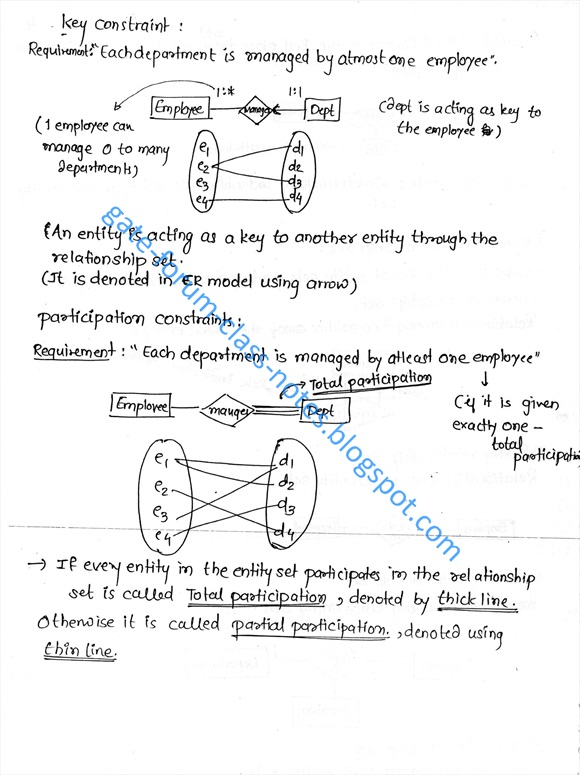 Key constraint :
Requirement: "Each department is managed by atmost one employee".
1:* 1:1
Employee manages Dept
(dept is acting as key to
the employee )
(1 employee can
manage 0 to many
departments)
e1 d1
e2 d2
e3 d3
e4 d4
(An entity is acting as a key to another entity through the
relationship set.
(It is denoted in ER model using arrow)
participation constraints:
Requirement : "Each department is managed by atleast one employee"
→ Total participation
Employee manages Dept
(if it is given
exactly one –
total
participation
e1 d1
e2 d2
e3 d3
e4 d4
→ If every entity in the entity set participates in the relationship
set is called Total participation, denoted by thick line.
Otherwise it is called partial participation., denoted using
thin line.
gate-forum-class-notes.blogspot.com